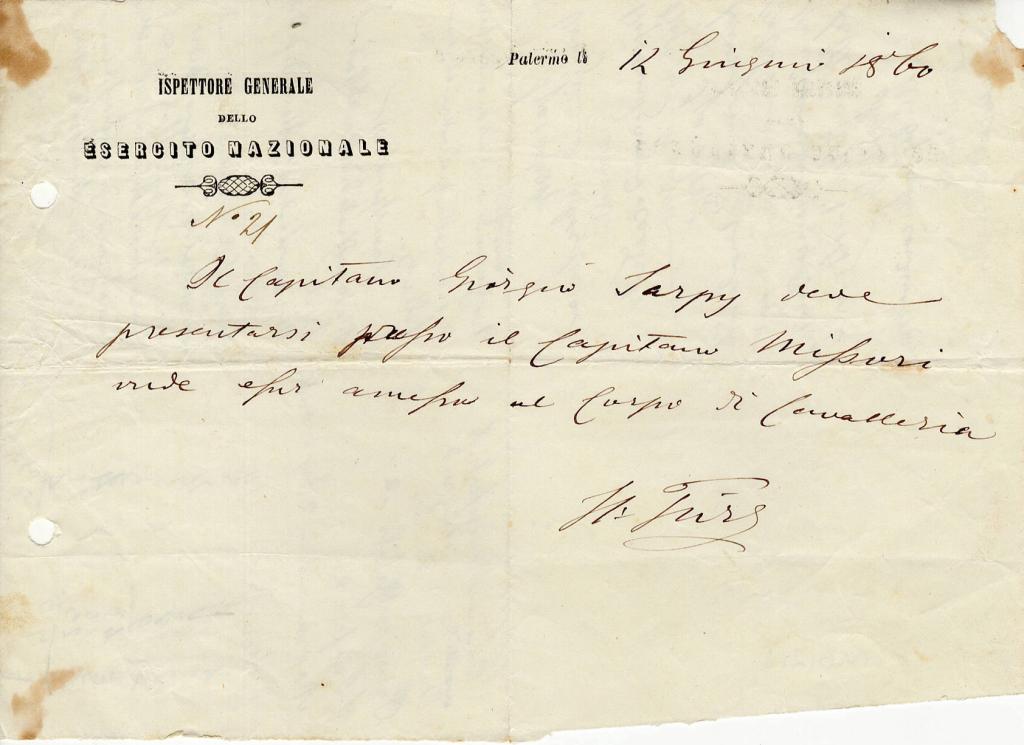 Palermo li 12 Giugnio 1860
ISPETTORE GENERALE
DELLO
ESERCITO NAZIONALE
No 21
Il Capitano Giorgio Sarpy deve
presentarsi presso il Capitano Missori
onde esser amesso al Corpo di Cavalleria
St: Türr